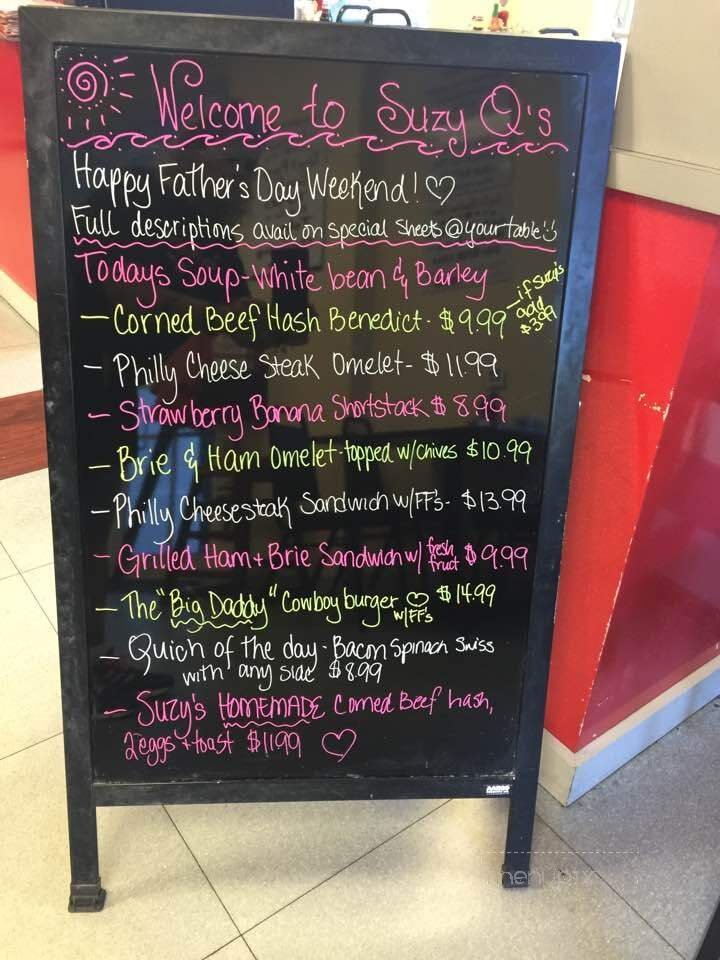 Welcome to Suzy Q's
Happy Father's Day Weekend! ♡
Full descriptions avail on special sheets @ your table
Todays Soup - White bean & Barley
- Corned Beef Hash Benedict - $9.99 - if Suzy's add $3.99
- Philly Cheese Steak Omelet - $11.99
- Strawberry Banana Shortstack $8.99
- Brie & Ham Omelet - topped w/chives $10.99
- Philly Cheesesteak Sandwich w/FF's - $13.99
- Grilled Ham + Brie Sandwich w/ fresh fruct $9.99
- The "Big Daddy" Cowboy burger ♡ w/FF's $14.99
- Quich of the day - Bacon Spinach Swiss
with any side $8.99
- Suzy's HOMEMADE Corned Beef hash,
2 eggs + toast $11.99 ♡